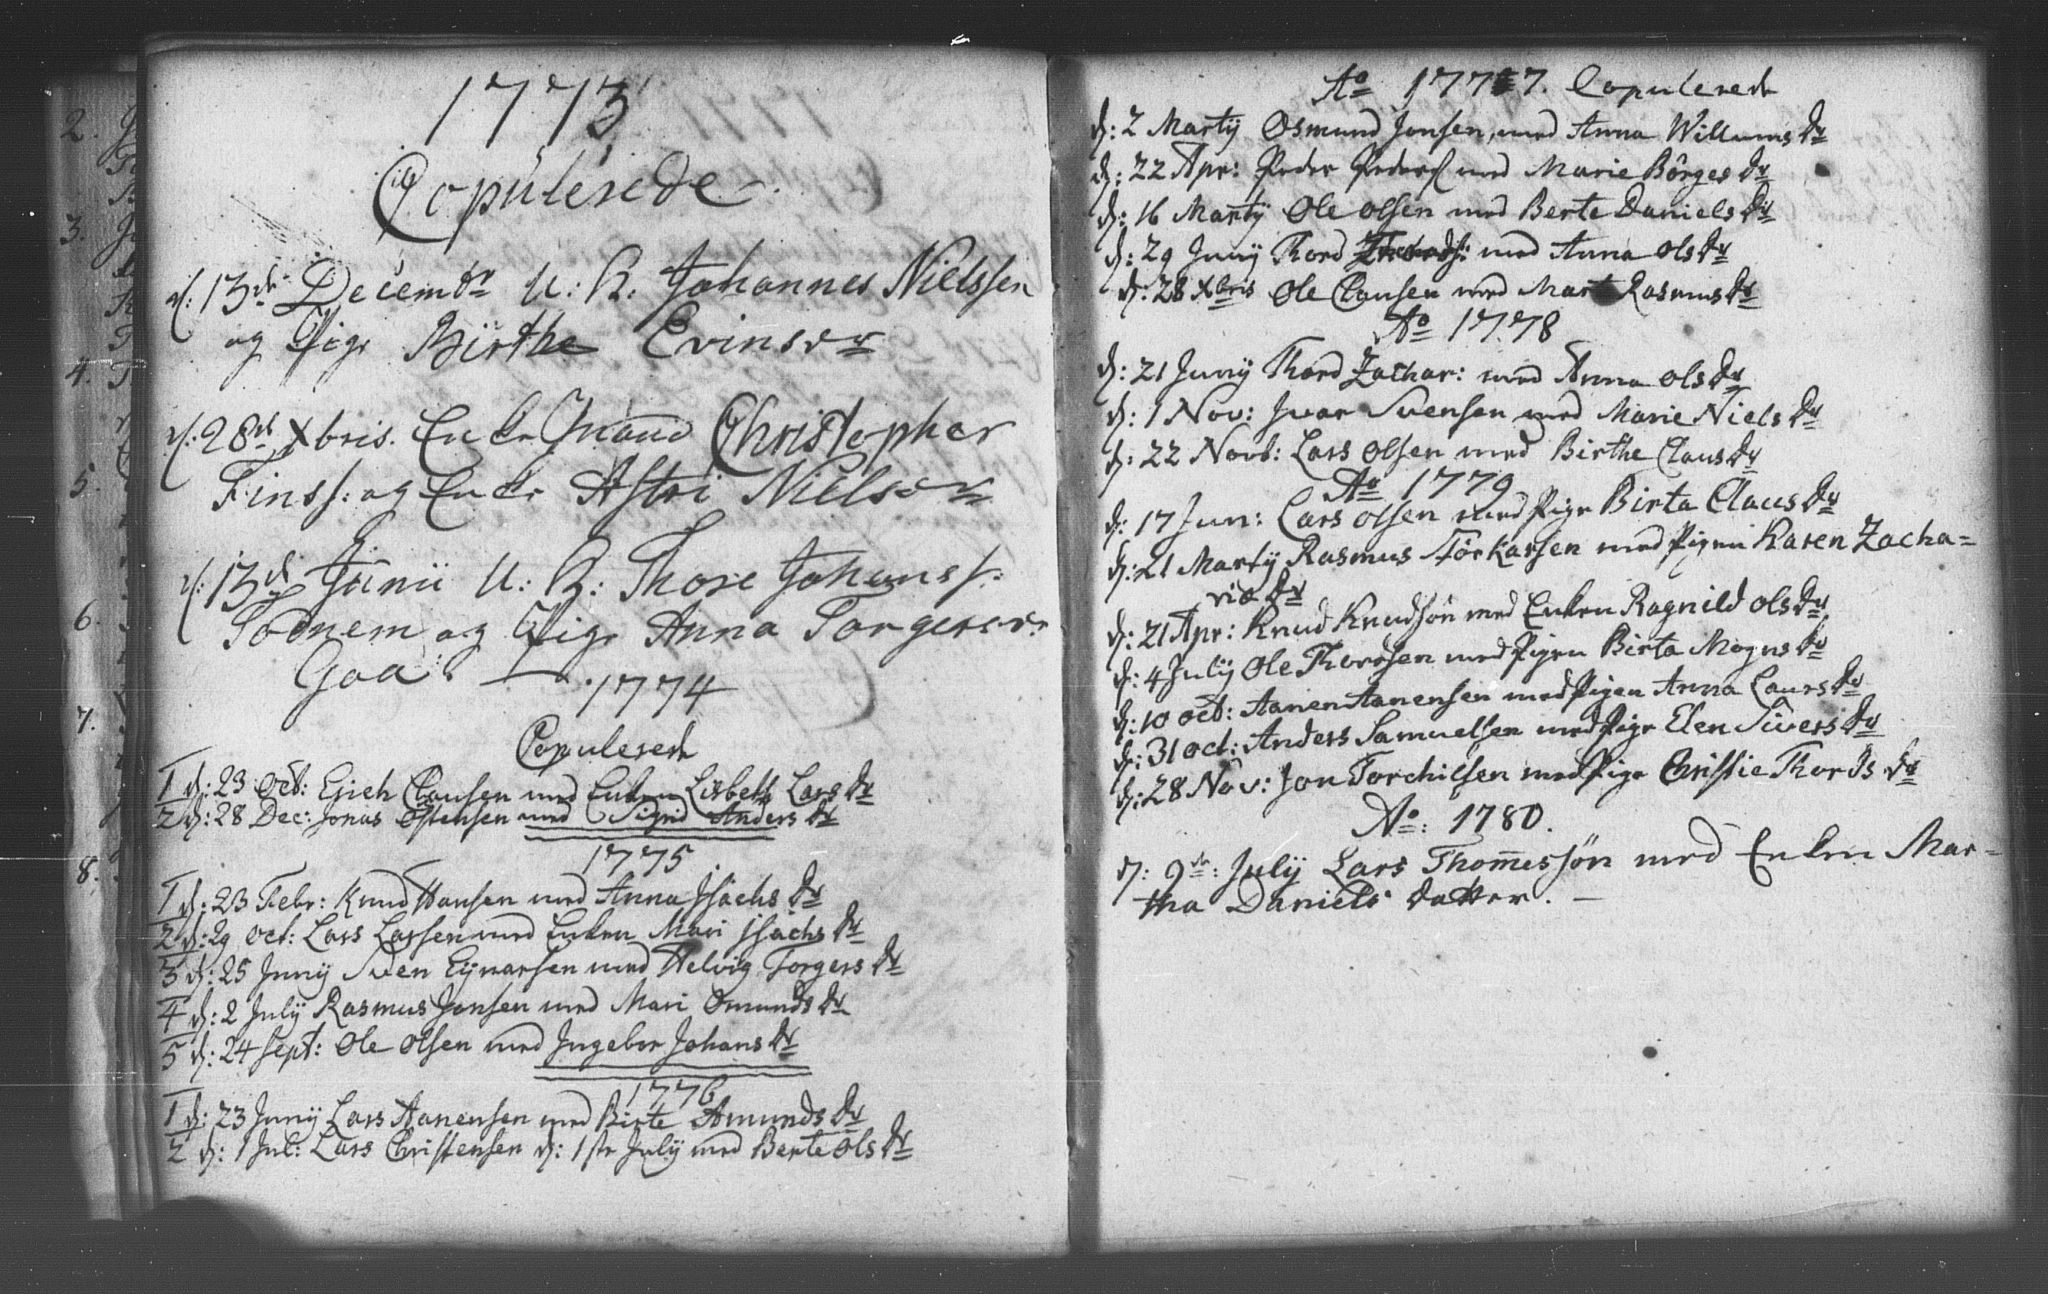 1773
Copulerede
d: 13de Decembr U: K. Johannes Nielssen
og Pige Birthe Evinsdr
d: 28d Xbris. Enke Mand Christopher
Finss: og Enke Astri Nielsdr
d: 13d Junii U: K: Thore Johanss:
Todnem og Pige Anna Torgersdr
Goa:
1774
Copulerede
1 d: 23 Oct: Giert Clausen med Enken Lisbeth Lars dr
2 d: 28 Dec: Jonas Ostensen med Signd Anders dr
1775
1 d: 23 Febr: Knud Hansen med Anna Isachs dr
2 d: 29 Oct: Lars Larsen med Enken Mari Isachs dr
3 d: 25 Junij Sven Eijnarsen med Helvig Torgers dr
4 d: 2 Julij Rasmus Jonsen med Mari Omunds dr
5 d: 24 Sept: Ole Olsen med Ingebor Johans dr
1776
1 d: 23 Junij Lars Aanensen med Birte Amunds dr
2 d: 1 Jul: Lars Christensen d: 1ste Julij med Berte Ols dr
Ao 1777. Copulerede
d: 2 Martij Osmund Jonsen, med Anna Willums dr
d: 22 Apr: Peder Peders med Marie Börges dr
d: 16 Martij Ole Olsen med Berte Daniels dr
d: 29 Junij Thord med Anna Ols dr
d: 28 Xbris Ole Clausen med Mart Rasmus dr
Ao 1778
d: 21 Junij Thord Zachar: med Anna Ols dr
d: 1 Nov: Ivar Svensen med Marie Niels dr
d: 22 Novb: Lars Olsen med Birthe Claus dr
Ao 1779
d: 17 Jun: Lars Olsen med Pige Birta Claus dr
d: 21 Martij Rasmus Törkarsen med Pigen Karen Zacha=
riæ dr
d: 21 Apr: Knud Knudsøn med Enken Ragnild Ols dr
d: 4 Julij Ole Thordsen med Pigen Birta Mogns dr
d: 10 Oct: Aanen Aanensen med Pigen Anna Laurs dr
d: 31 Oct: Anders Samuelsen med Pige Elen Sivers dr
d: 28 Nov: Jon Torchilsen med Pige Christie Thords dr
Ao: 1780.
d: 9de: Julij Lars Thommesøn med Enken Mar=
tha Daniels datter. —
2.
3.
4.
5.
6.
7.
8.